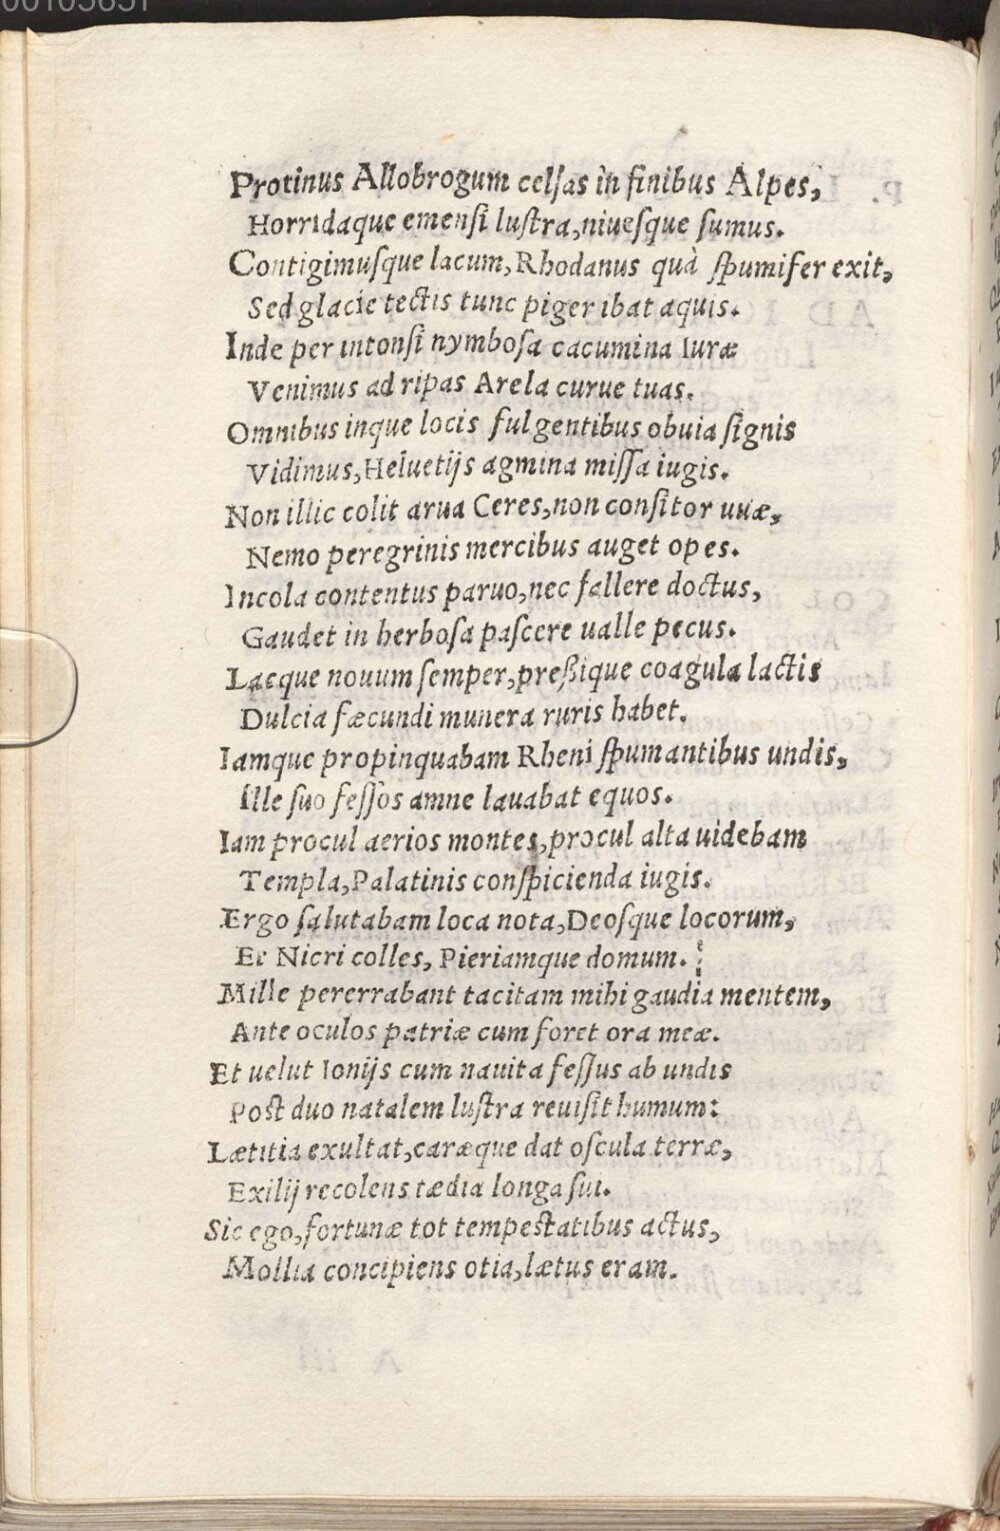 Protinus Allobrogum celſas in finibus Alpes,
Horridaque emenſi luſtra,niueſque ſumus.
Contigimuſque lacum,Rhodanus quà ſpumifer exit,
Sed glacie tectis tunc piger ibat aquis.
Inde per intonſi nymboſa cacumina Iuræ
Venimus ad ripas Arela curue tuas.
Omnibus inque locis fulgentibus obuia ſignis
Vidimus,Heluetijs agmina miſſa iugis.
Non illic colit arua Ceres,non conſitor uuæ,
Nemo peregrinis mercibus auget opes.
Incola contentus paruo,nec fallere doctus,
Gaudet in herboſa paſcere ualle pecus.
Lacque nouum ſemper,preßique coagula lactis
Dulcia fæcundi munera ruris habet.
Iamque propinquabam Rheni ſpumantibus undis,
Ille ſuo feſſos amne lauabat equos.
Iam procul aerios montes,procul alta uidebam
Templa,Palatinis conſpicienda iugis.
Ergo ſalutabam loca nota,Deoſque locorum,
Et Nicri colles, Pieriamque domum.
Mille pererrabant tacitam mihi gaudia mentem,
Ante oculos patriæ cum foret ora meæ.
Et uelut Ionijs cum nauita feſſus ab undis
Poſt duo natalem luſtra reuiſit humum:
Lætitia exultat,caræque dat oſcula terræ,
Exilij recolens tædia longa ſui.
Sic ego,fortunæ tot tempeſtatibus actus,
Mollia concipiens otia,lætus eram.